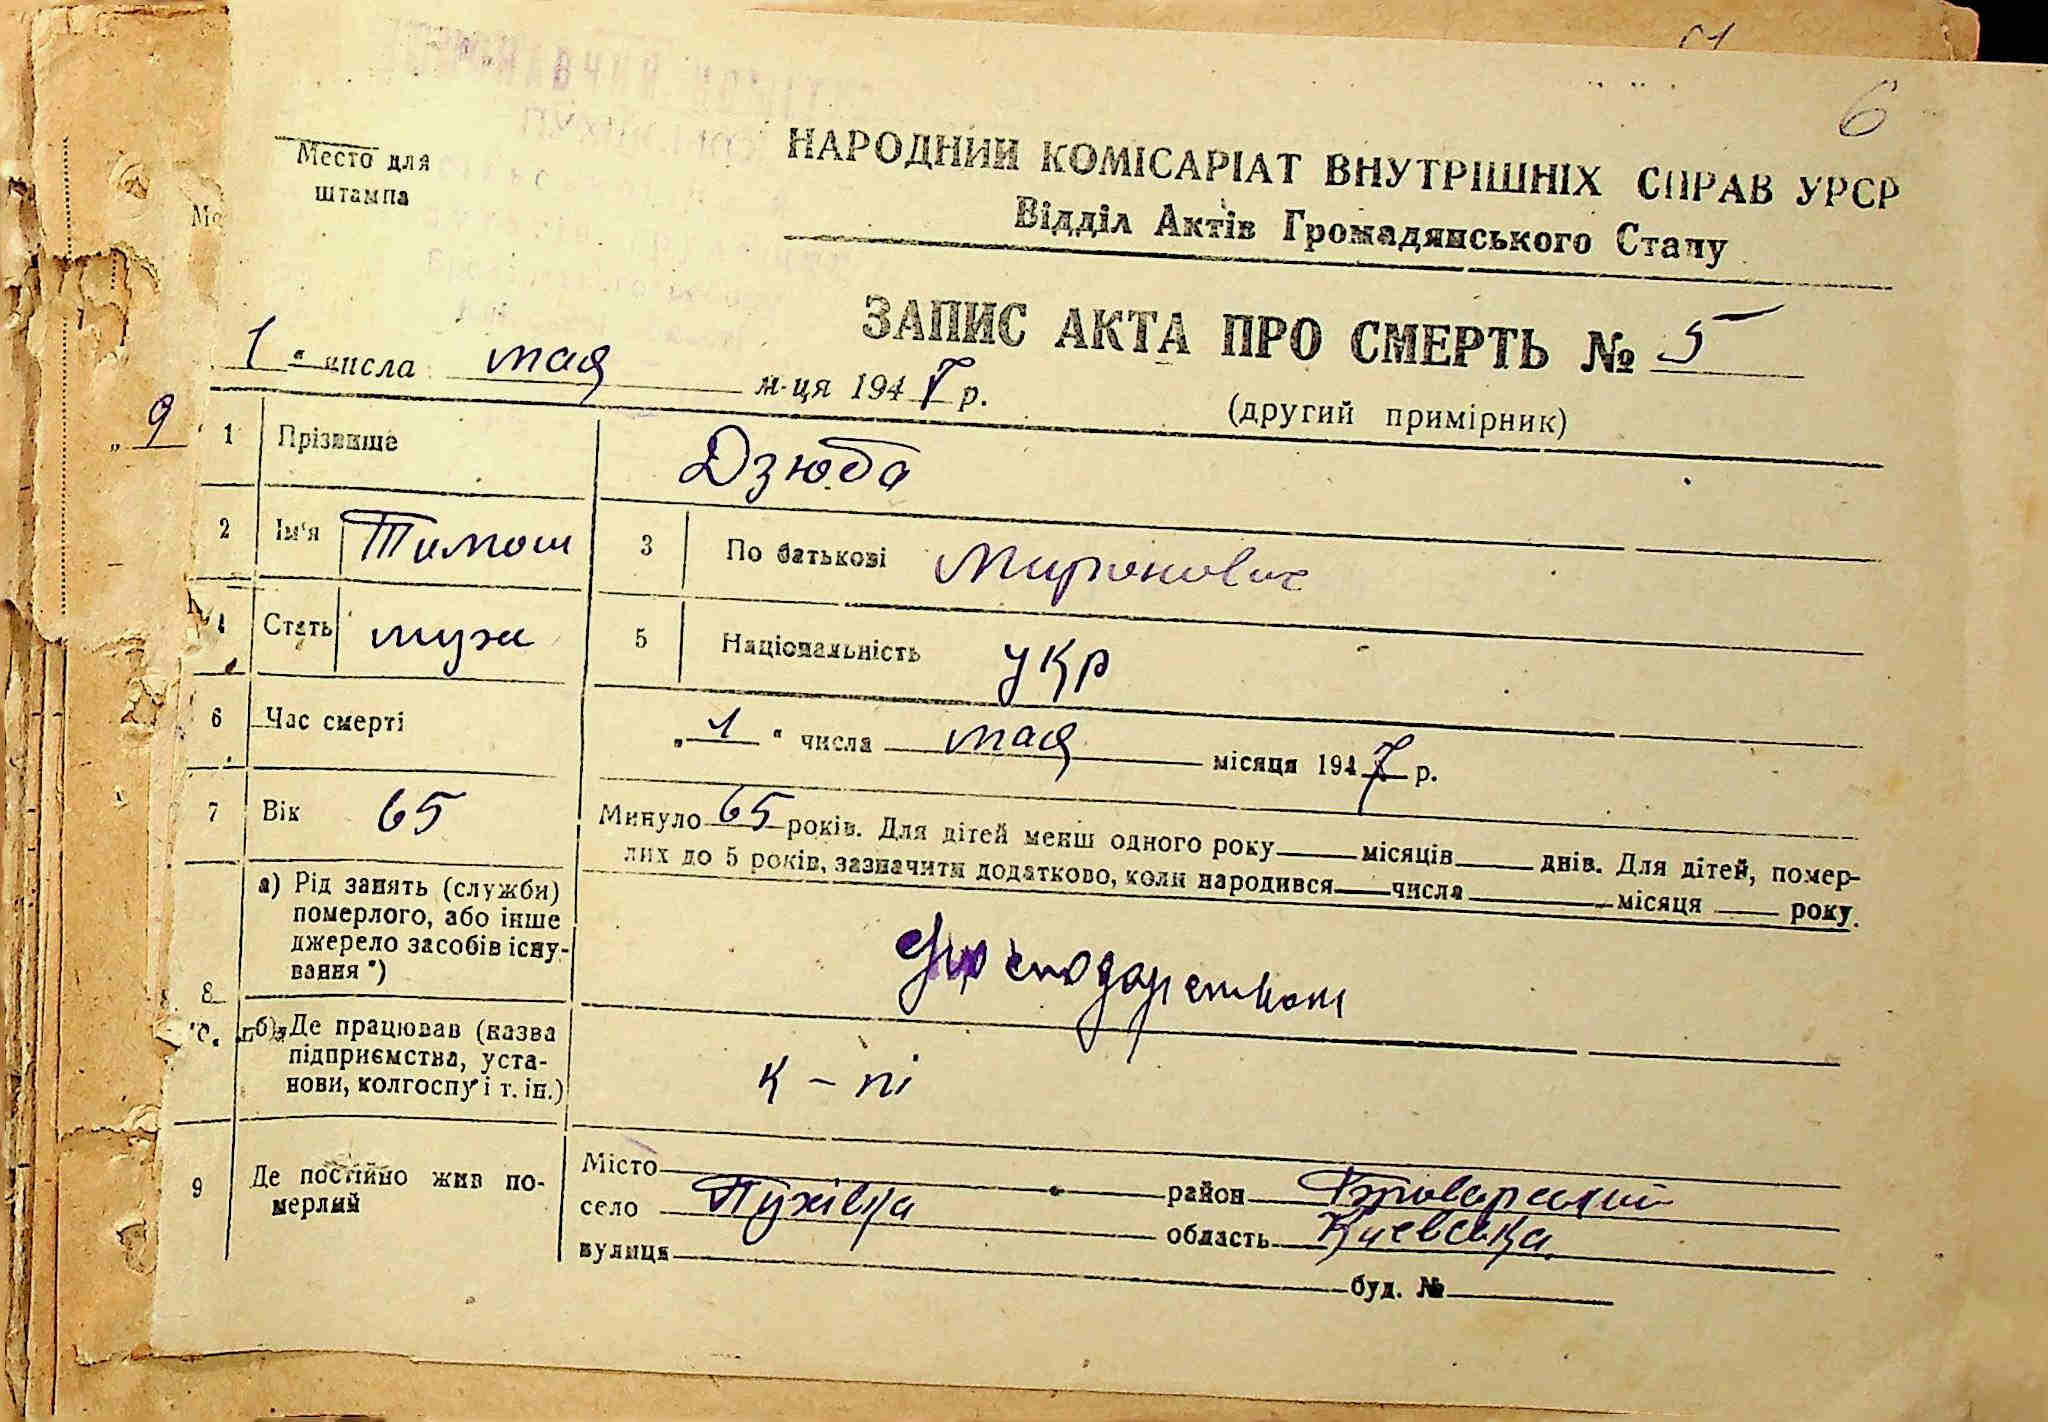 6
Место для
штампа
НАРОДНИЙ КОМІСАРІАТ ВНУТРІШНІХ СПРАВ УРСР
Відділ Актів Громадянського Стану
ЗАПИС АКТА ПРО СМЕРТЬ № 5
1 " числа мая м-ця 1947 р.
(другий примірник)
„ 9
1 Прізвище Дзюба
2 Ім'я Тимош 3 По батькові Миронович
4 Стать мужи 5 Національність укр
6 Час смерті „ 1 " числа мая місяця 1947 р.
7 Вік 65 Минуло 65 років. Для дітей менш одного року місяців днів. Для дітей, помер-
лих до 5 років, зазначити додатково, коли народився числа місяця року.
8 а) Рід занять (служби)
померлого, або інше
джерело засобів існу-
вання *)
б) Де працював (назва
підприємства, уста-
нови, колгоспу і т. ін.)
к - пі
9 Де постійно жив по-
мерлий
Місто район Броварский
село Пухівка область Киевська
вулиця буд. №